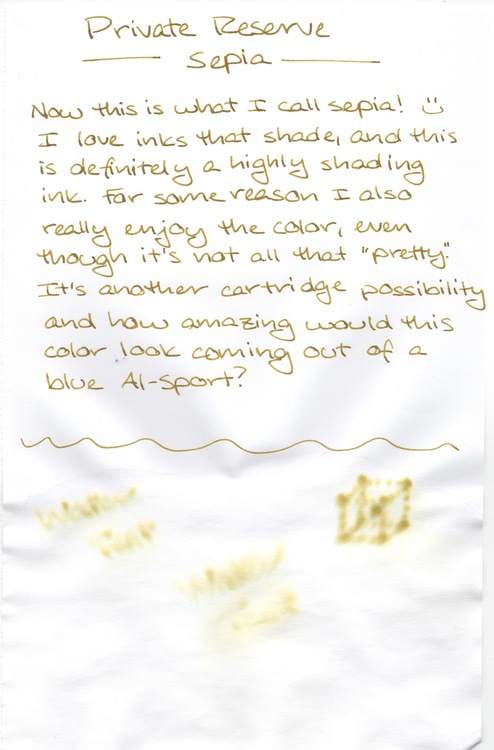 Private Reserve
Sepia
Now this is what I call sepia! :)
I love inks that shade, and this
is definitely a highly shading
ink. For some reason I also
really enjoy the color, even
though it's not all that "pretty."
It's another cartridge possibility
and how amazing would this
color look coming out of a
blue Al-Sport?
Water
Test
Water
Test